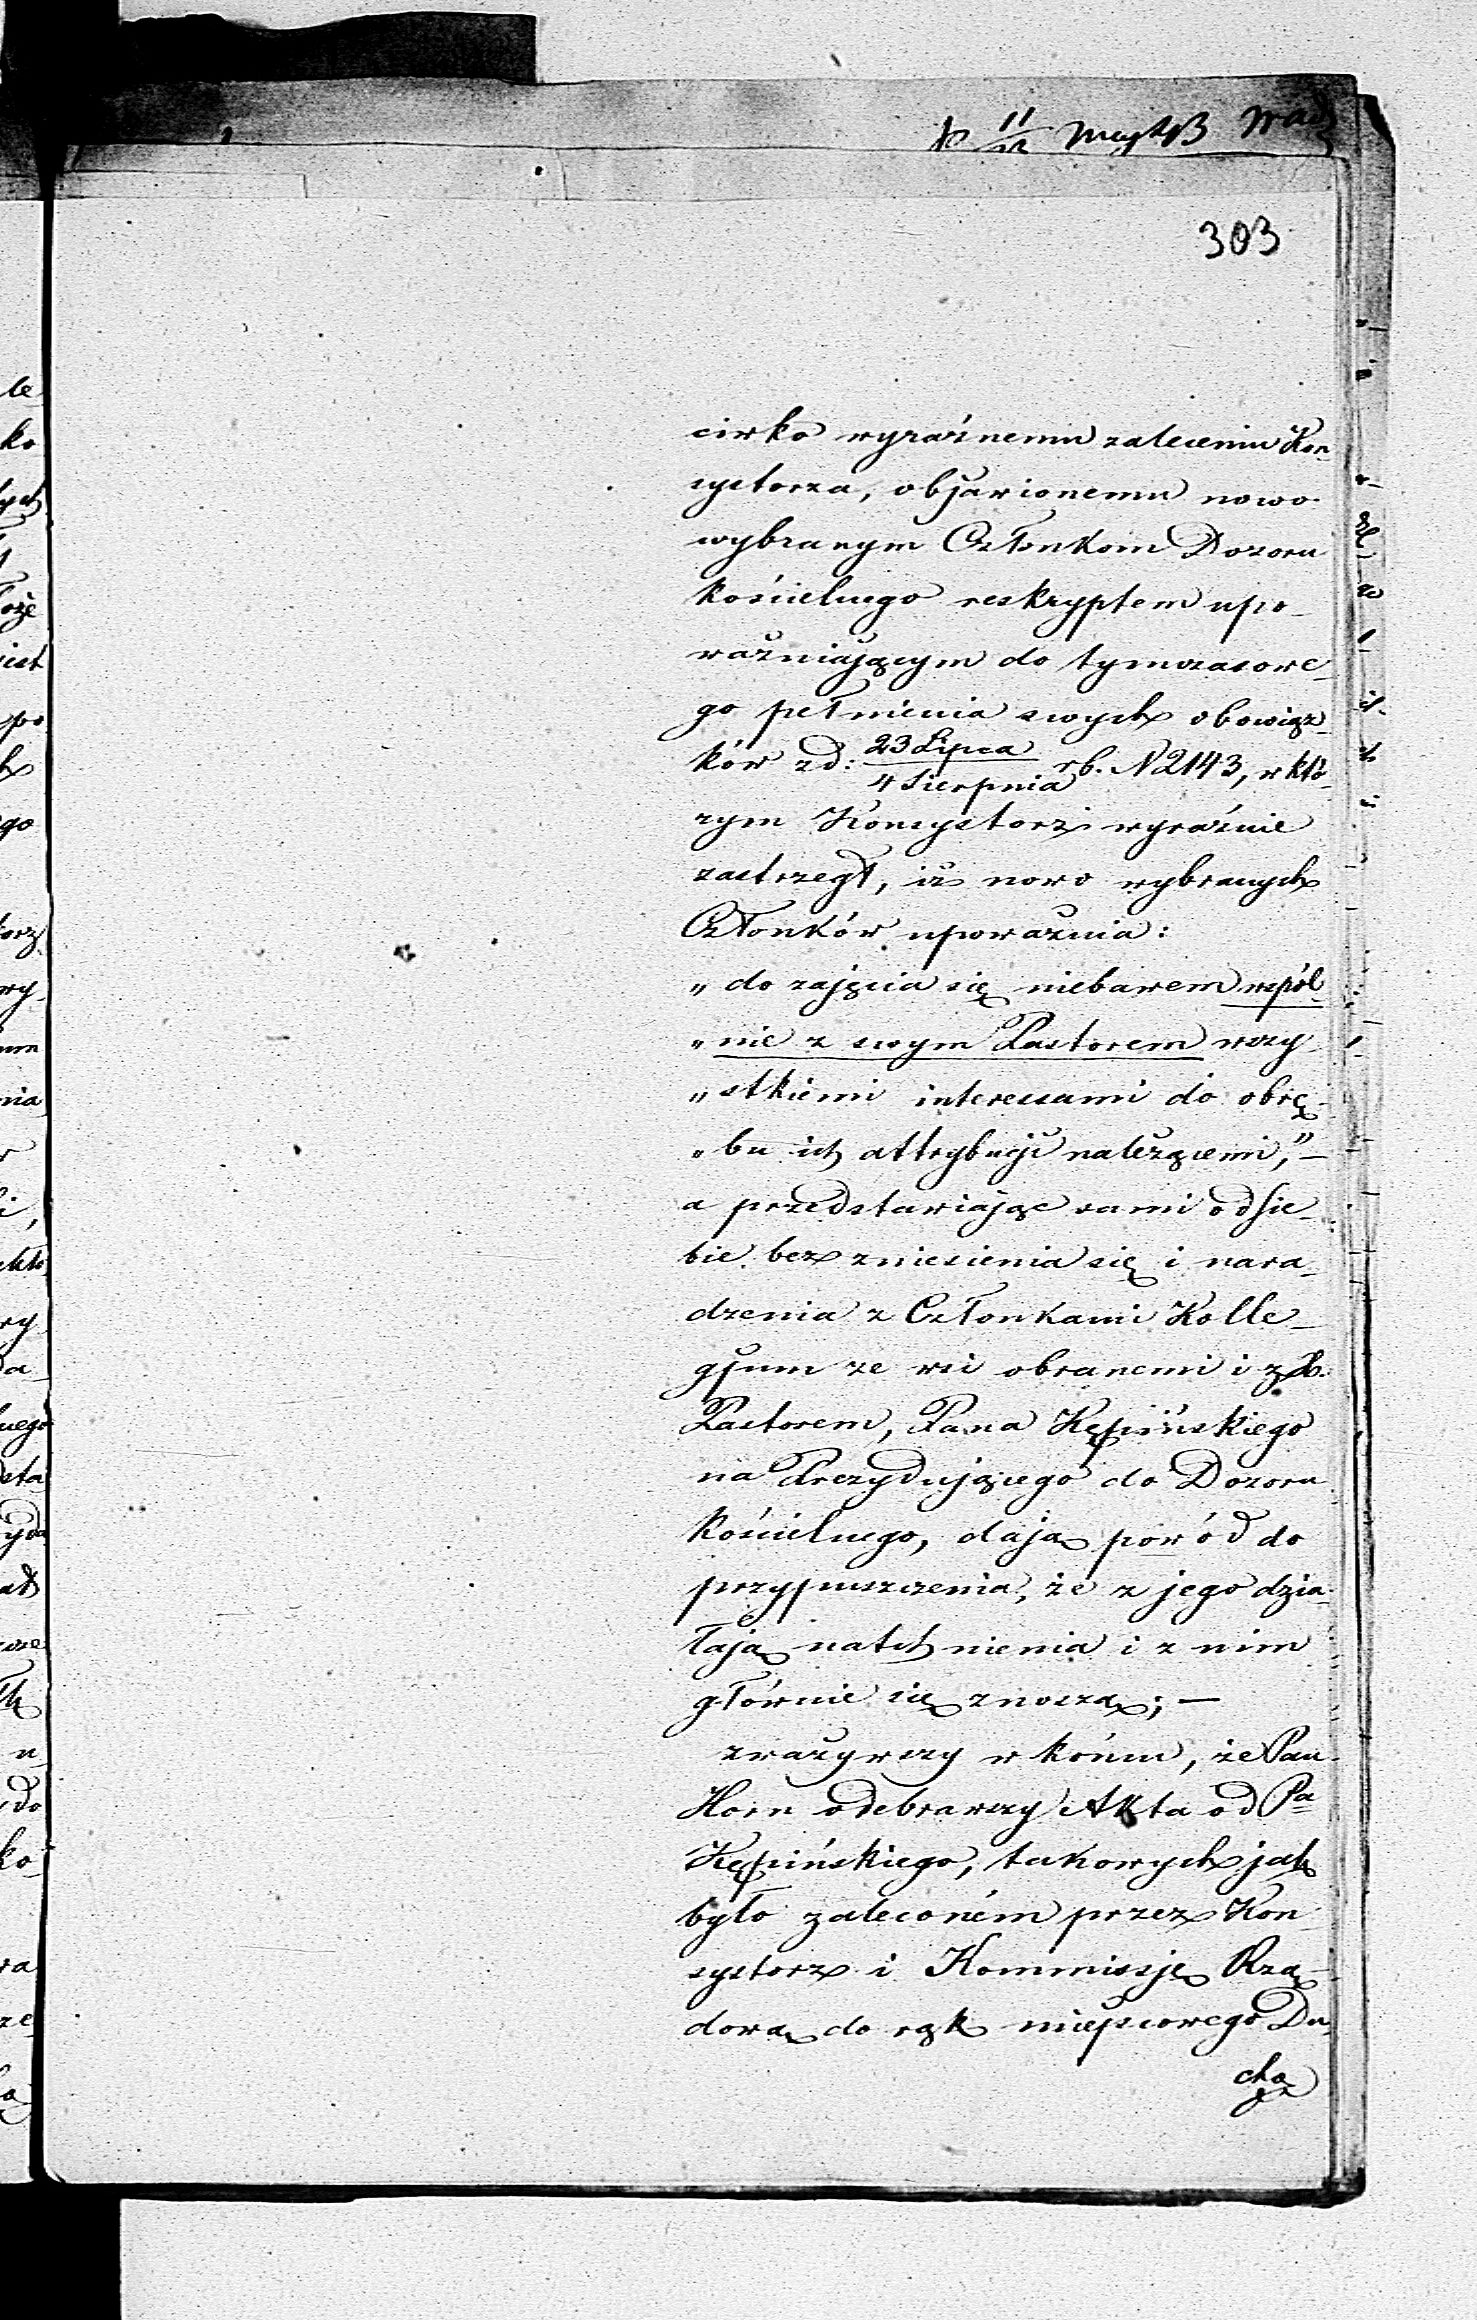 303
ciwko wyraźnemu zaleceniu Kon-
systorza, objawionemu nowo
wybranym Członkom Dozoru
kościelnego reskryptem upo-
ważniającym do tymczasowe-
go pełnienia swych obowiąz-
ków z d: 23 Lipca / 4 Sierpnia rb. N 2143, w któ-
rym Konsystorz wyraźnie
zastrzegł, iż nowo wybranych
Członków upoważnia:
„do zajęcia się niebawem wspól-
„nie z swym Pastorem wszy-
„stkiemi interessami do obrę-
„bu ich attrybucji należącemi,” —
a przedstawiając sami od sie-
bie bez zniesienia się i nara-
dzenia z Członkami Kolle-
gjum ze wsi obranemi i z X.
Pastorem, Pana Kępińskiego
na Prezydującego do Dozoru
kościelnego, dają powód do
przypuszczenia, że z jego dzia-
łają natchnienia i z nim
głównie się znoszą; —
zważywszy w końcu, że Pan
Horn odebrawszy Akta od Pa
Kępińskiego, takowych jak
było zaleconém przez Kon-
systorz i Kommissję Rzą-
dową do rąk miejscowego Du-